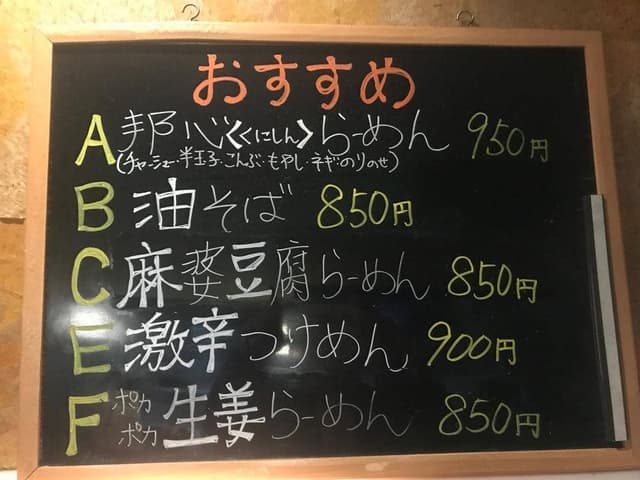 おすすめ
A 邦心〈くにしん〉らーめん 950円
(チャーシュー・半玉子・こんぶ・もやし・ネギ・のりのせ)
B 油そば 850円
C 麻婆豆腐らーめん 850円
E 激辛つけめん 900円
F ポカポカ生姜らーめん 850円